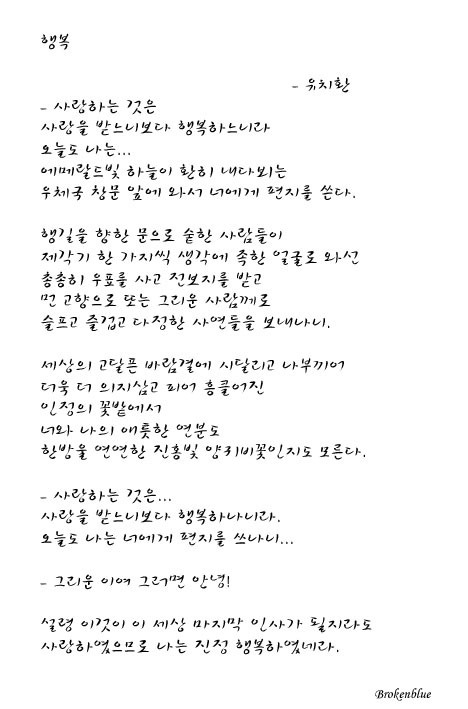 행복
- 유치환
- 사랑하는 것은
사랑을 받느니보다 행복하느니라
오늘도 나는...
에메랄드빛 하늘이 환히 내다뵈는
우체국 창문 앞에 와서 너에게 편지를 쓴다.
행길을 향한 문으로 숱한 사람들이
제각기 한 가지씩 생각에 족한 얼굴로 와선
총총히 우표를 사고 전보지를 받고
먼 고향으로 또는 그리운 사람께로
슬프고 즐겁고 다정한 사연들을 보내나니.
세상의 고달픈 바람결에 시달리고 나부끼어
더욱 더 의지삼고 피어 흥클어진
인정의 꽃밭에서
너와 나의 애틋한 연분도
한방울 연연한 진홍빛 양귀비꽃인지도 모른다.
- 사랑하는 것은...
사랑을 받느니보다 행복하나니라.
오늘도 나는 너에게 편지를 쓰나니...
- 그리운 이여 그러면 안녕!
설령 이것이 이 세상 마지막 인사가 될지라도
사랑하였으므로 나는 진정 행복하였네라.
Brokenblue